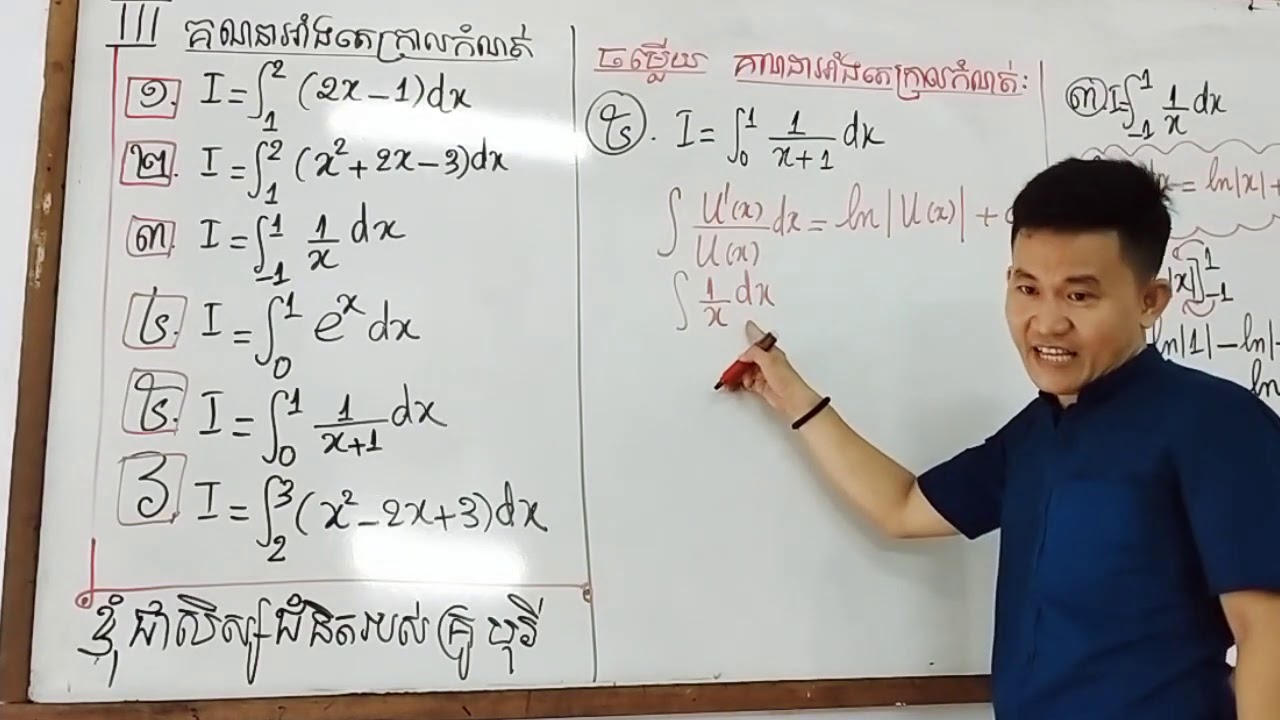 III គណនាអាំងតេក្រាលកំណត់
១. I = ∫₁² (2x − 1)dx
២. I = ∫₁² (x² + 2x − 3)dx
៣. I = ∫₋₁¹ 1/x dx
៤. I = ∫₀¹ eˣ dx
៥. I = ∫₀¹ 1/(x+1) dx
៦ I = ∫₂³ (x² − 2x + 3)dx
ខ្ញុំជាសិស្សជំនិតរបស់គ្រូ
ចម្លើយ គណនាអាំងតេក្រាលកំណត់:
៥. I = ∫₀¹ 1/(x+1) dx
∫ U'(x)/U(x) dx = ln|U(x)| +
∫ 1/x dx
៣ I = ∫₋₁¹ 1/x dx
= ln|x| +
|x|]₋₁¹
ln|1| − ln|
ln